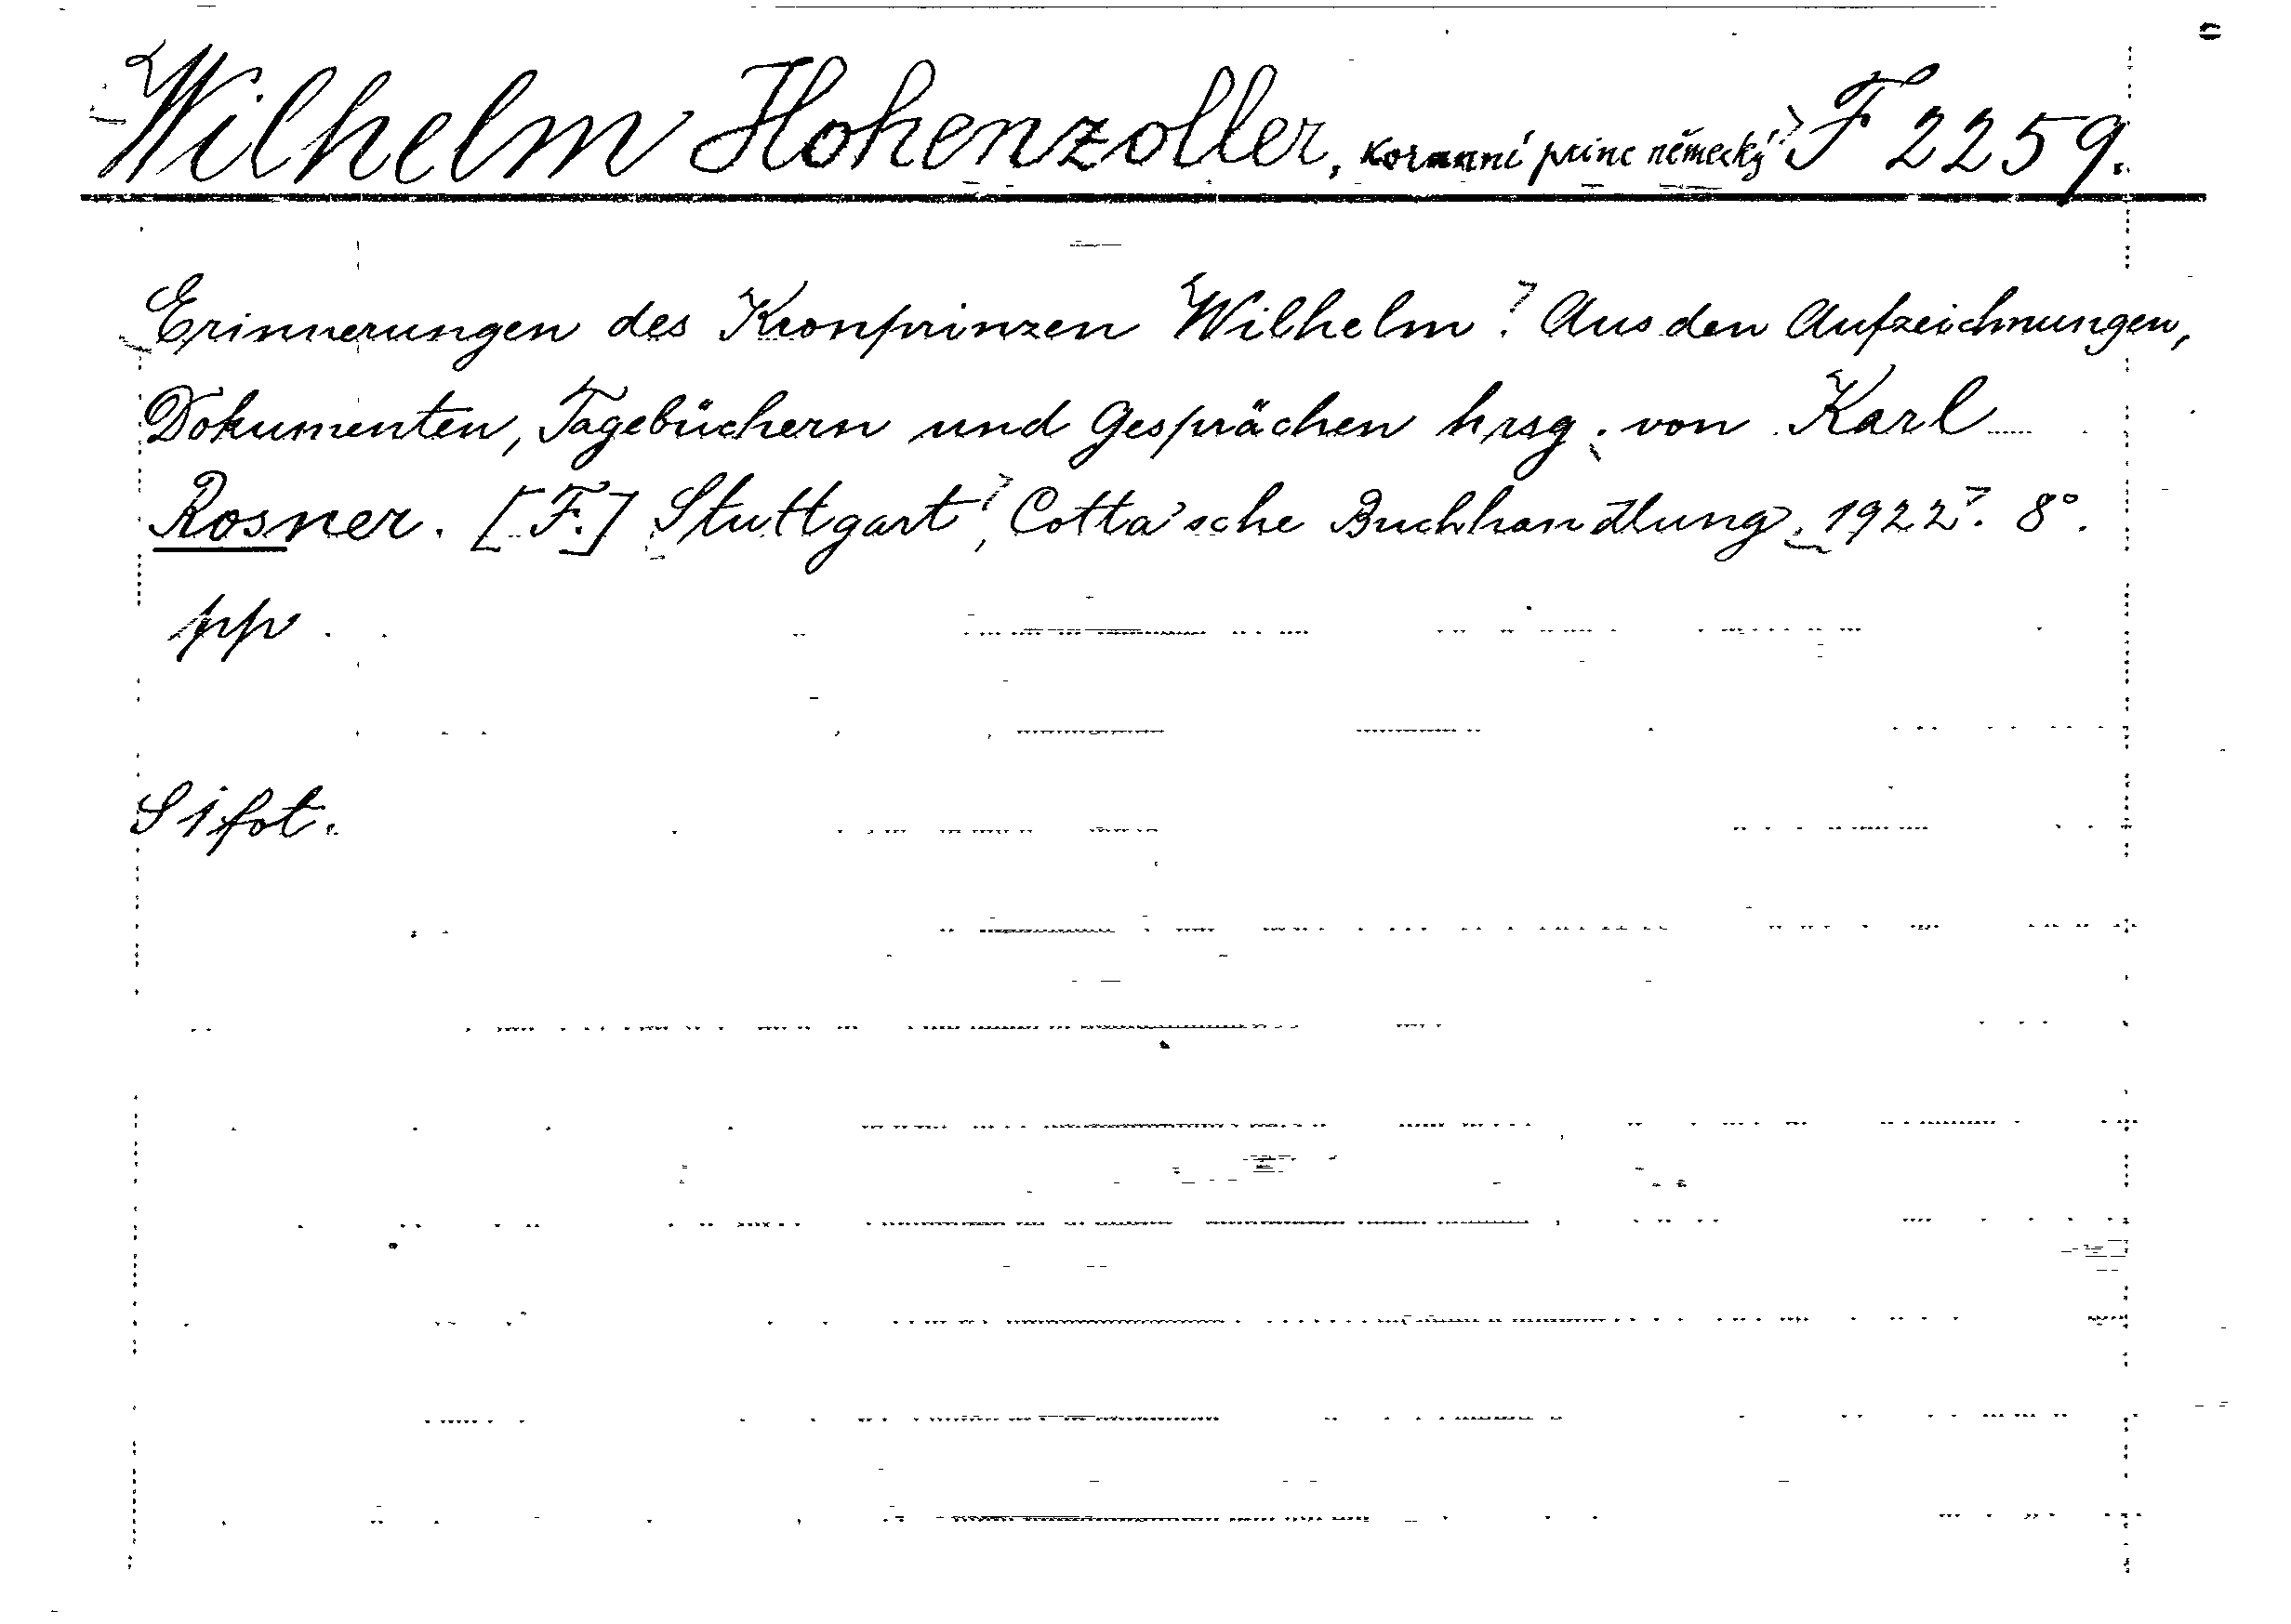 Wilhelm Hohenzoller, korunní princ německý F 2259.
Erinnerungen des Kronprinzen Wilhelm. Aus den Aufzeichnungen,
Dokumenten, Tagebüchern und Gesprächen hrsg. von Karl
Rosner. [F.] Stuttgart, Cotta'sche Buchhandlung, 1922. 8°.
pp.
S 1 fot.